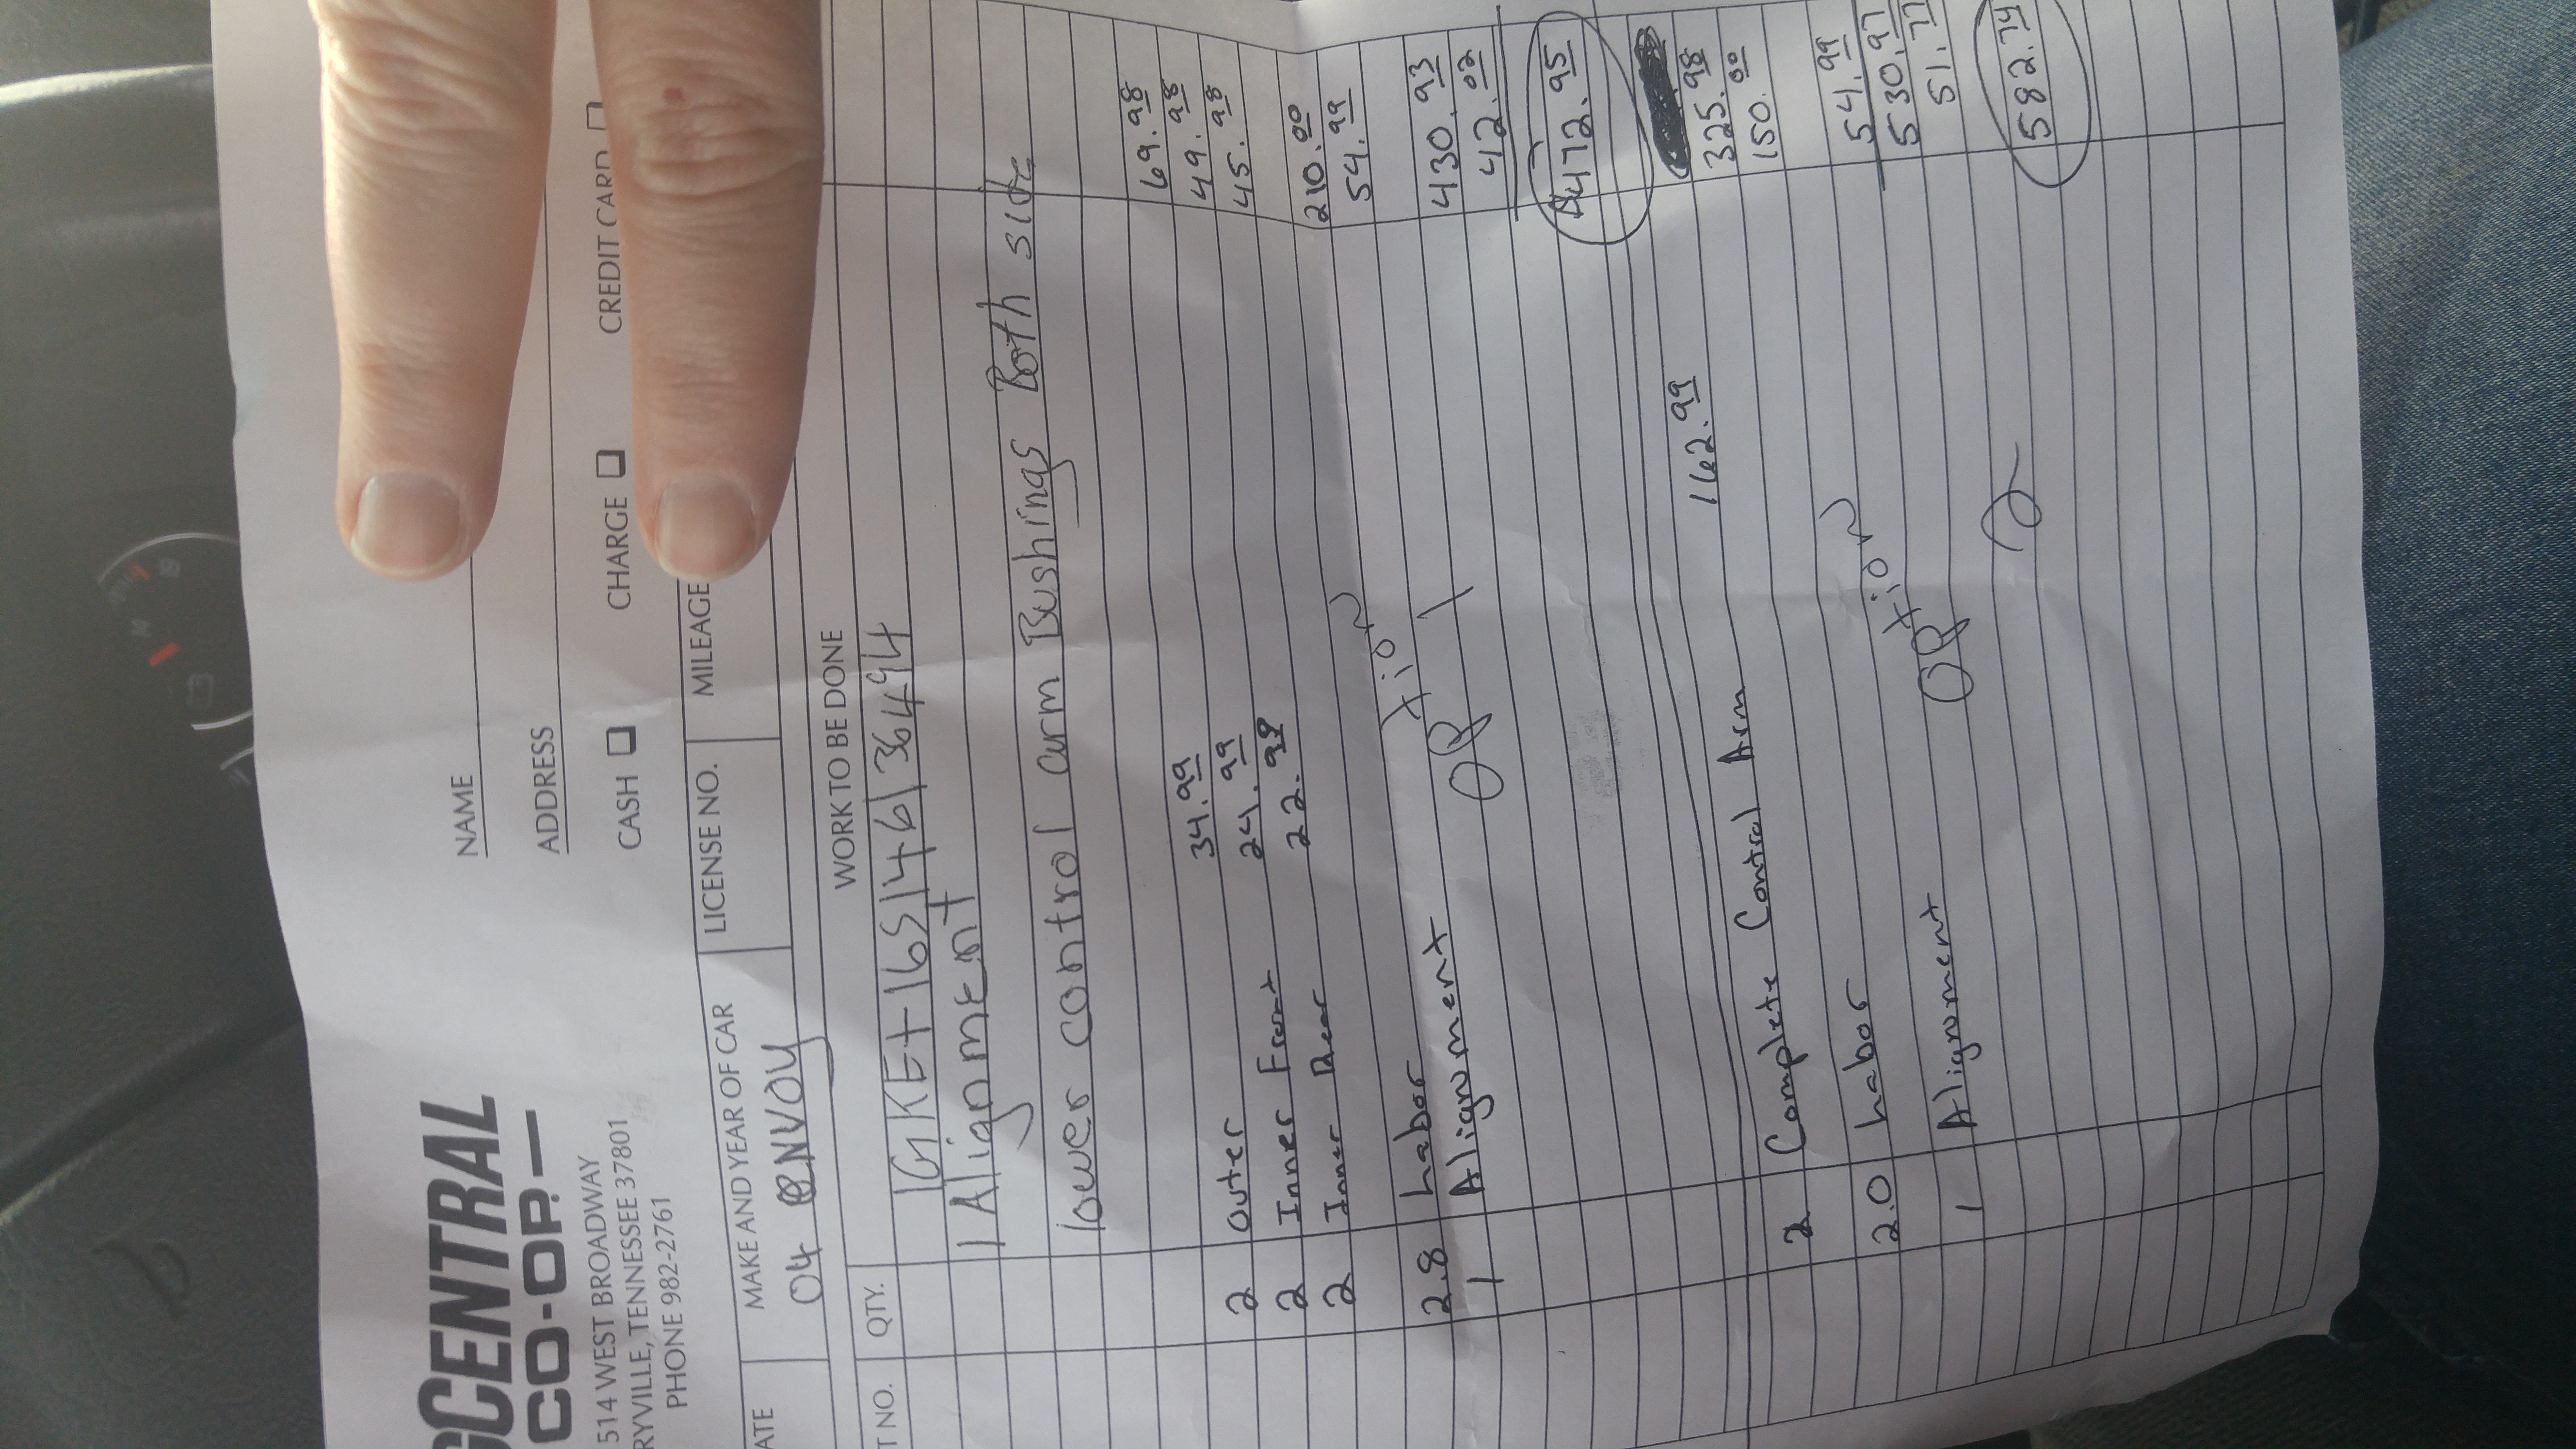 CENTRAL
CO-OP.
514 WEST BROADWAY
RYVILLE, TENNESSEE 37801
PHONE 982-2761
NAME
ADDRESS
CASH CHARGE CREDIT CARD
ATE MAKE AND YEAR OF CAR LICENSE NO. MILEAGE
04 ENVOY
T NO. QTY. WORK TO BE DONE
1GKET16S146136494
1 Alignment
lower control arm Bushings Both side
2 Outer 34.99 69.98
2 Inner Front 24.99 49.98
2 Inner Rear 22.99 45.98
2.8 Labor 210.00
1 Alignment 54.99
Option 1
430.93
42.02
$472.95
2 Complete Control Arm 162.99 325.98
2.0 Labor 150.00
1 Alignment 54.99
Option 2
530.97
51.77
582.74